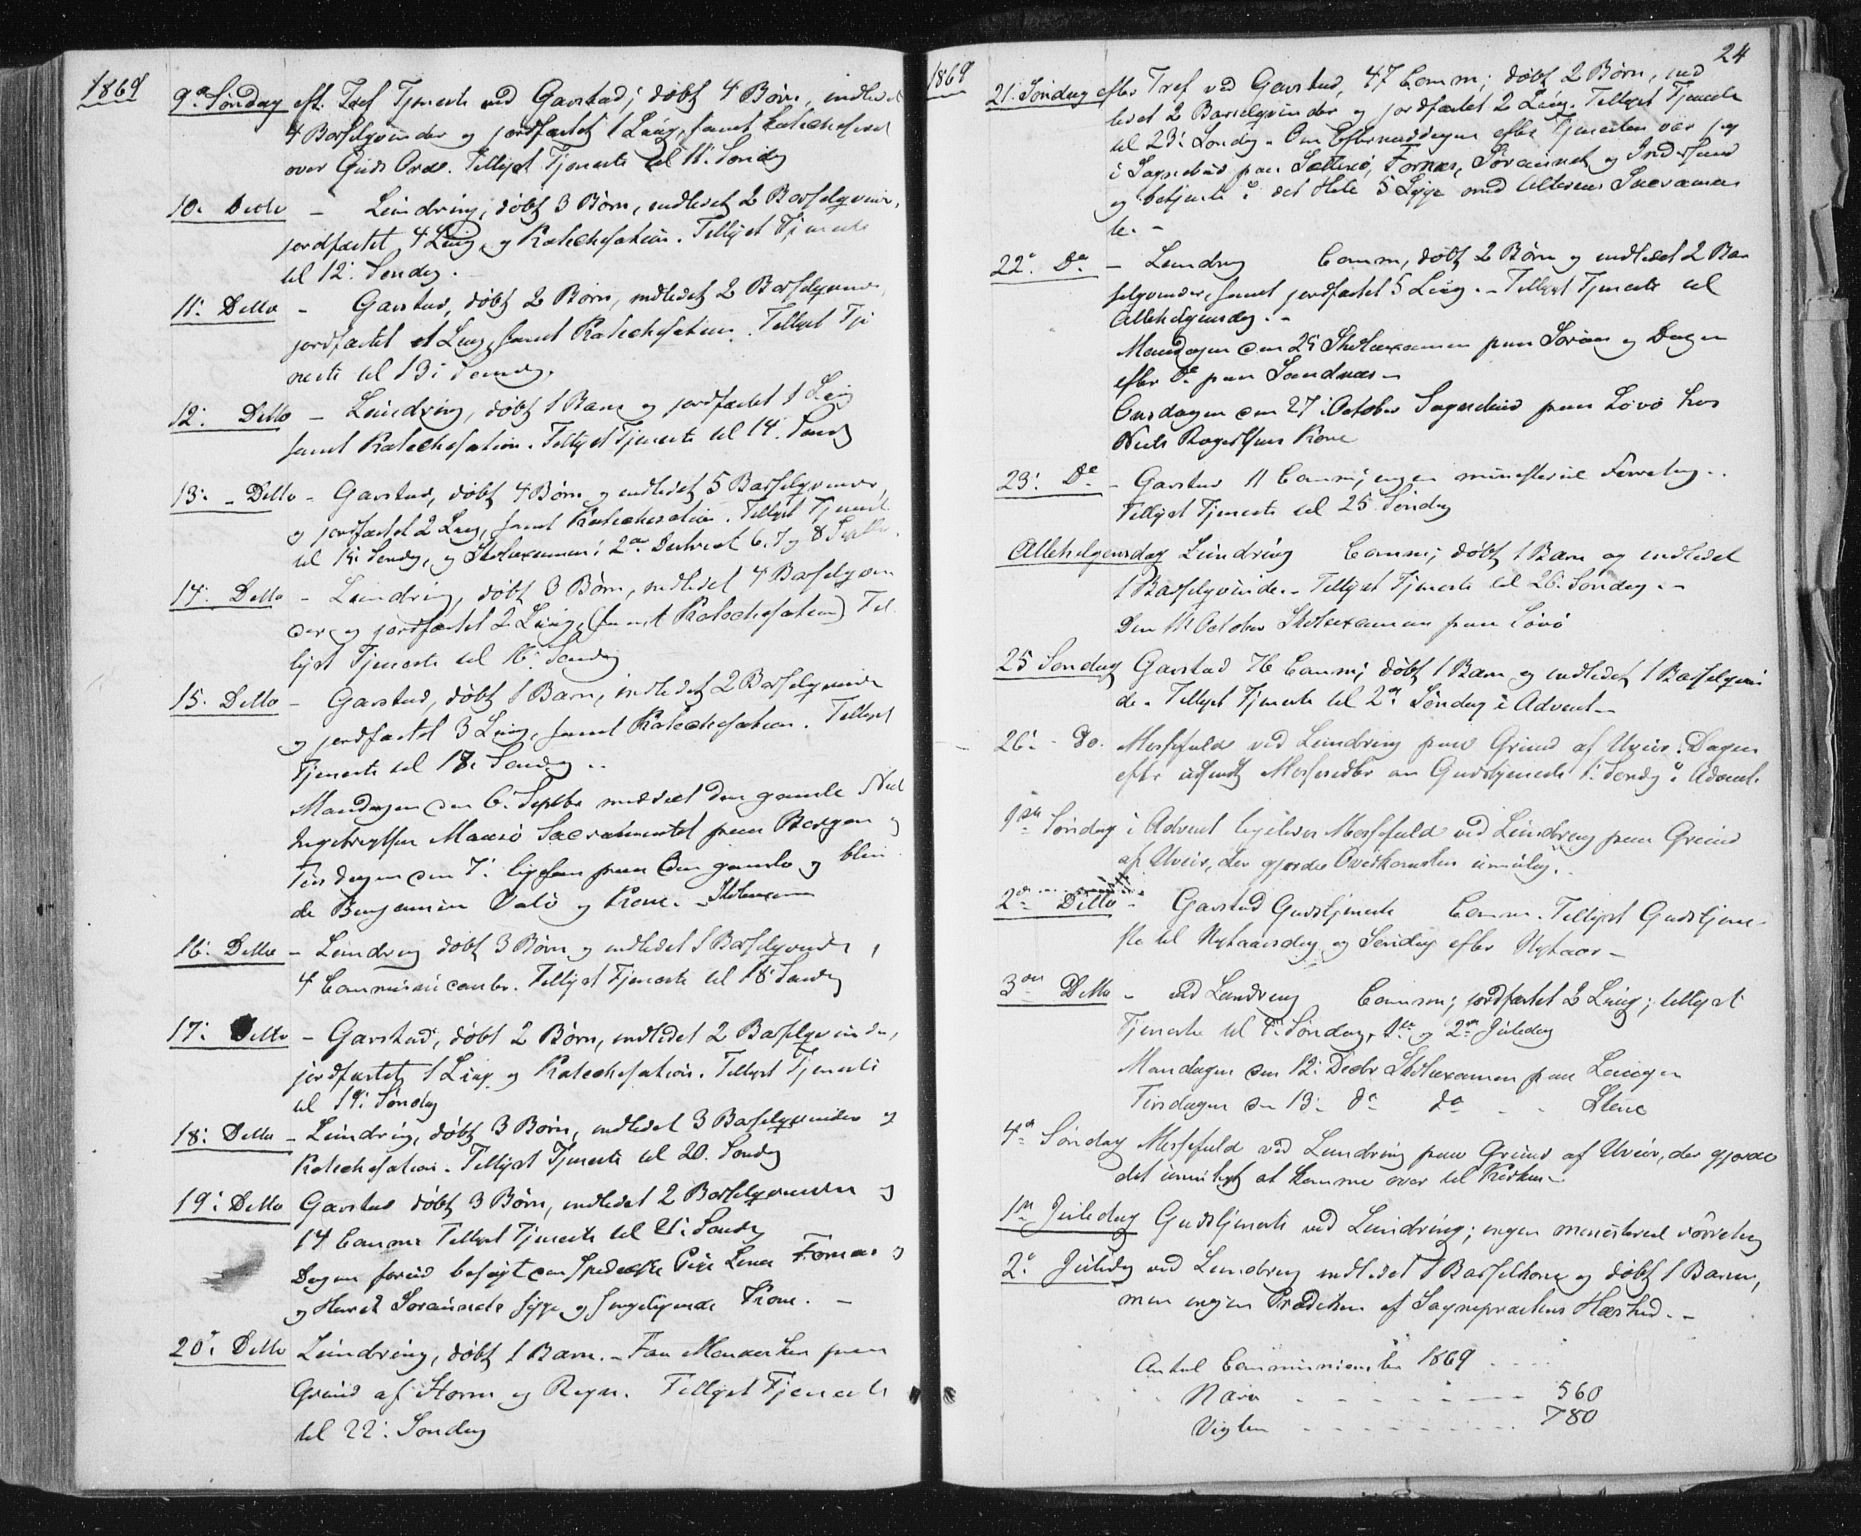 1869
9de Søndag eft. Tref Tjeneste ved Garstad; døbt 4 Børn, indledet
4 Barselqvinder og jordfæstet 1 Liig, samt katechiseret
over Guds Ord. Tillyst Tjeneste til 11. Søndag
10. Ditto – Leindring, døbt 3 Børn, indledet 2 Barselqvinder,
jordfæstet 4 Liig, og Katechesation. Tillyst Tjeneste
til 12. Søndag.
11. Ditto – Garstad, døbt 2 Børn, indledet 2 Barselqvinder,
jordfæstet et Liig, samt Katechesation. Tillyst Tje
neste til 13. Søndag.
12. Ditto – Leindring, døbt 1 Barn og jordfæstet 1 Liig
samt Katechesation. Tillyst Tjeneste til 14. Søndag
13. – Ditto – Garstad, døbt 4 Børn og indledet 5 Barselqvinder,
og jordfæstet 2 Liig, samt Katechesation. Tillyst Tjeneste
til 15. Søndag, og Skoleexamen i 2det District 6. 7 og 8 Septbr.
14. Ditto – Leindring, døbt 3 Børn, indledet 4 Barselqvin
der og jordfæstet 2 Liig, (samt Katechesation) Til
lyst Tjeneste til 16. Søndag
15. Ditto – Garstad, døbt 1 Barn, indledet 2 Barselqvinder
og jordfæstet 3 Liig, samt Katechesation. Tillyst
Tjeneste til 17. Søndag..
Mandagen den 6. Septbr meddelt den gamle
Ingebregtsen Sacramentet paa Borgan og
Tirsdagen den 7. ligesaa paa den gamle og blin
de Benjamin Valø og Kone. – Skoleexamen
16. Ditto – Leindring døbt 3 Børn og indledet 1 Barselqvinde,
4 Communicanter. Tillyst Tjeneste til 18. Søndag
17. Ditto – Garstad, døbt 2 Børn, indledet 2 Barselqvinder,
jordfæstet 1 Liig og Katechesation. Tillyst Tjeneste
til 19. Søndag
18. Ditto – Leindring, døbt 3 Børn, indledet 3 Barselqvinder og
Katechesation. Tillyst Tjeneste til 20. Søndag
19. Ditto Garstad døbt 3 Børn, indledet 2 Barselqvinder og
14 Comm. Tillyst Tjeneste til 21. Søndag
Dagen forud besøgt den spedalske Pige Lena Fornæs og
og Henrik Søraunets syge og sengeliggende Kone. –
20. Ditto Leindring, døbt 1 Barn. – Faa Mennesker paa
Grund af Storm og Regn. Tillyst Tjeneste
til 22. Søndag
1869
24
21. Søndag efter Tref ved Garstad, 47 Comm; døbt 2 Børn, ind
ledet 2 Barselqvinder og jordfæstet 2 Liig. Tillyst Tjeneste
til 23. Søndag. Om Eftermiddagen efter Tjenesten var jeg
i Sognebud paa Fornæs, Søraunet og
og betjente i det Hele 5 Syge med Alterens Sacramen
te. –
22. Do – Leindring Comm, døbt 2 Børn og indledet 2 Bar
selqvinder, samt jordfæstet 5 Liig. – Tillyst Tjeneste til
Allehelgensdag. –
Mandagen den 25 Skoleexamen paa Søraun og Dagen
efter Do paa Sandnæs –
Onsdagen den 27. October Sognebud paa Løvø hos
Niels Kone
23. Do – Garstad 11 Comm; ingen ministeriel Forretng..
Tillyst Tjeneste til 25 Søndag
Allehelgensdag Leindring Comm; døbt 1 Barn og indledet
1 Barselqvinde. – Tillyst Tjeneste til 26. Søndag. –
Den 11. October Skoleexamen paa Løvø
25 Søndag Garstad 76 Comm; døbt 1 Barn og indledet 1 Barselqvin
de. Tillyst Tjeneste til 2den Søndag i Advent –
26. – Do. Messefald ved Leindring paa Grund af Uveir. Dagen
efter udsendt Messesedler om Gudstjeneste 1. Søndag i Advent.
1ste Søndag i Advent ligeledes Messefald ved Leindring paa Grund
af Uveir, der gjorde Overkomsten umulig.
2den Ditto – Garstad Gudstjeneste Comm. Tillyst Gudstjene-
ste til Nytaarsdag og Søndag efter Nytaar –
3die Ditto – ved Leindring Comm; jordfæstet 2 Liig; tillyst
Tjeneste til 4. Søndag, 1ste og 2den Juledag
Mandagen den 12. Decbr Skoleexamen paa Laugen
Tirsdagen den 13. do do – – Steene
4de Søndag Messefald ved Leindring paa Grund af Uveir, der gjorde
det umuligt at komme over til Kirken –
1ste Juledag Gudstjeneste ved Leindring; ingen ministeriel Forretng
2. Juledag ved Leindring indledet 1 Barselkone og døbt 1 Barn,
men ingen Prædiken af Sognepræstens Hæshed. –
Antal Communicanter i 1869 . . . .
Nærø – – – – – – 560
Vigten . . . . . . . . . 780